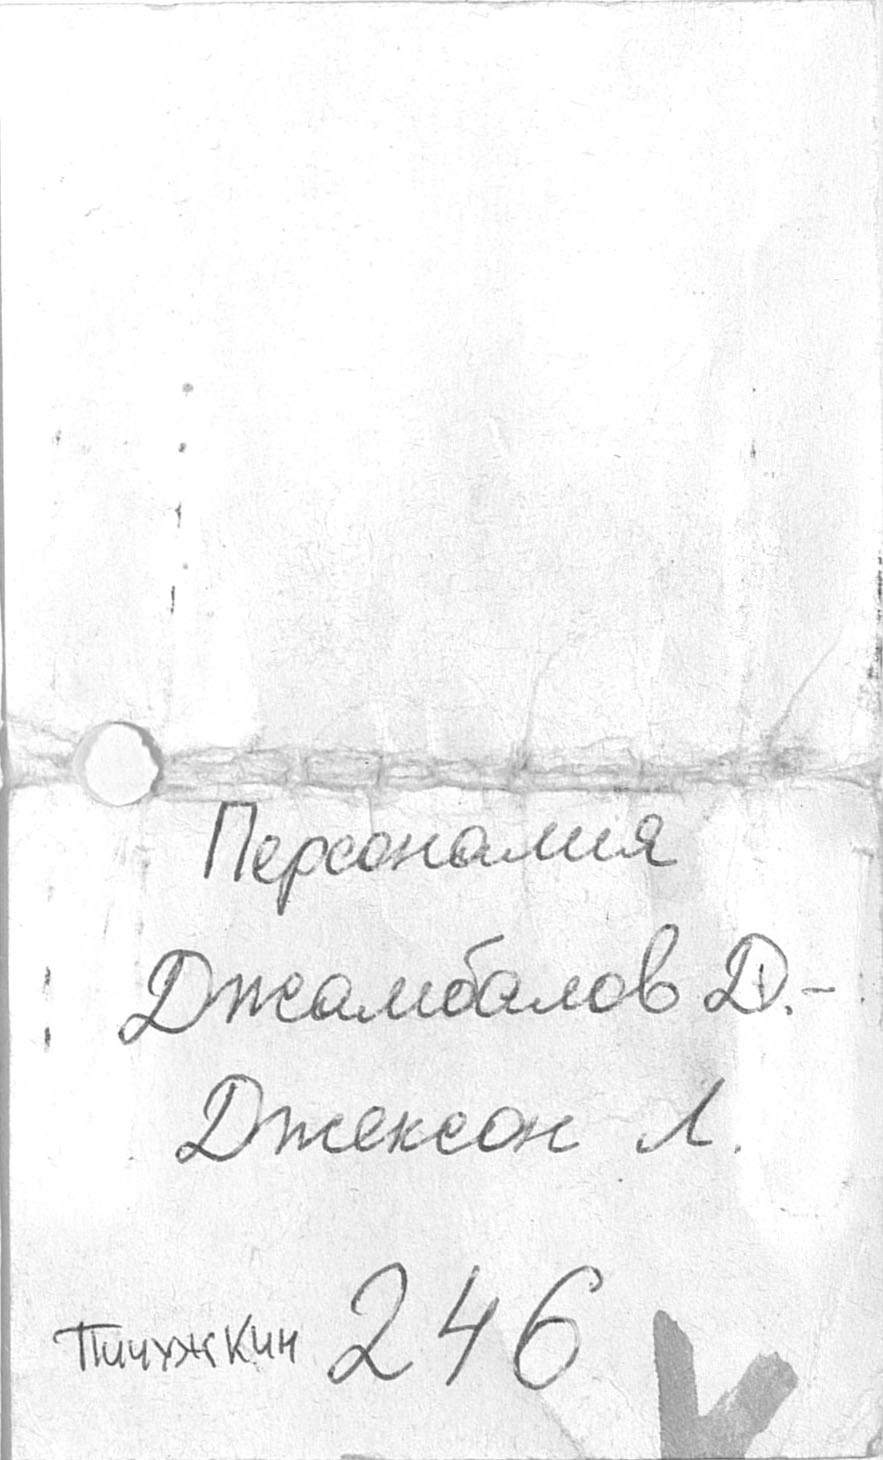 Персоналия
Джамбалов Д.-
Джексон Л.
Пичужкин 246